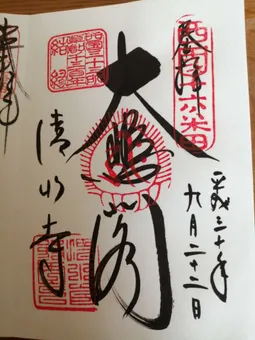 奉拝
西国十六番
平成三十年
九月二十二日
大悲閣
清水寺